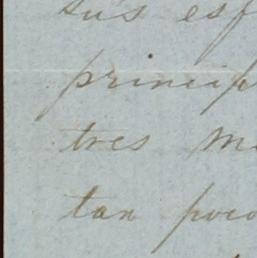 sus esp
princip
tres M
tan poco